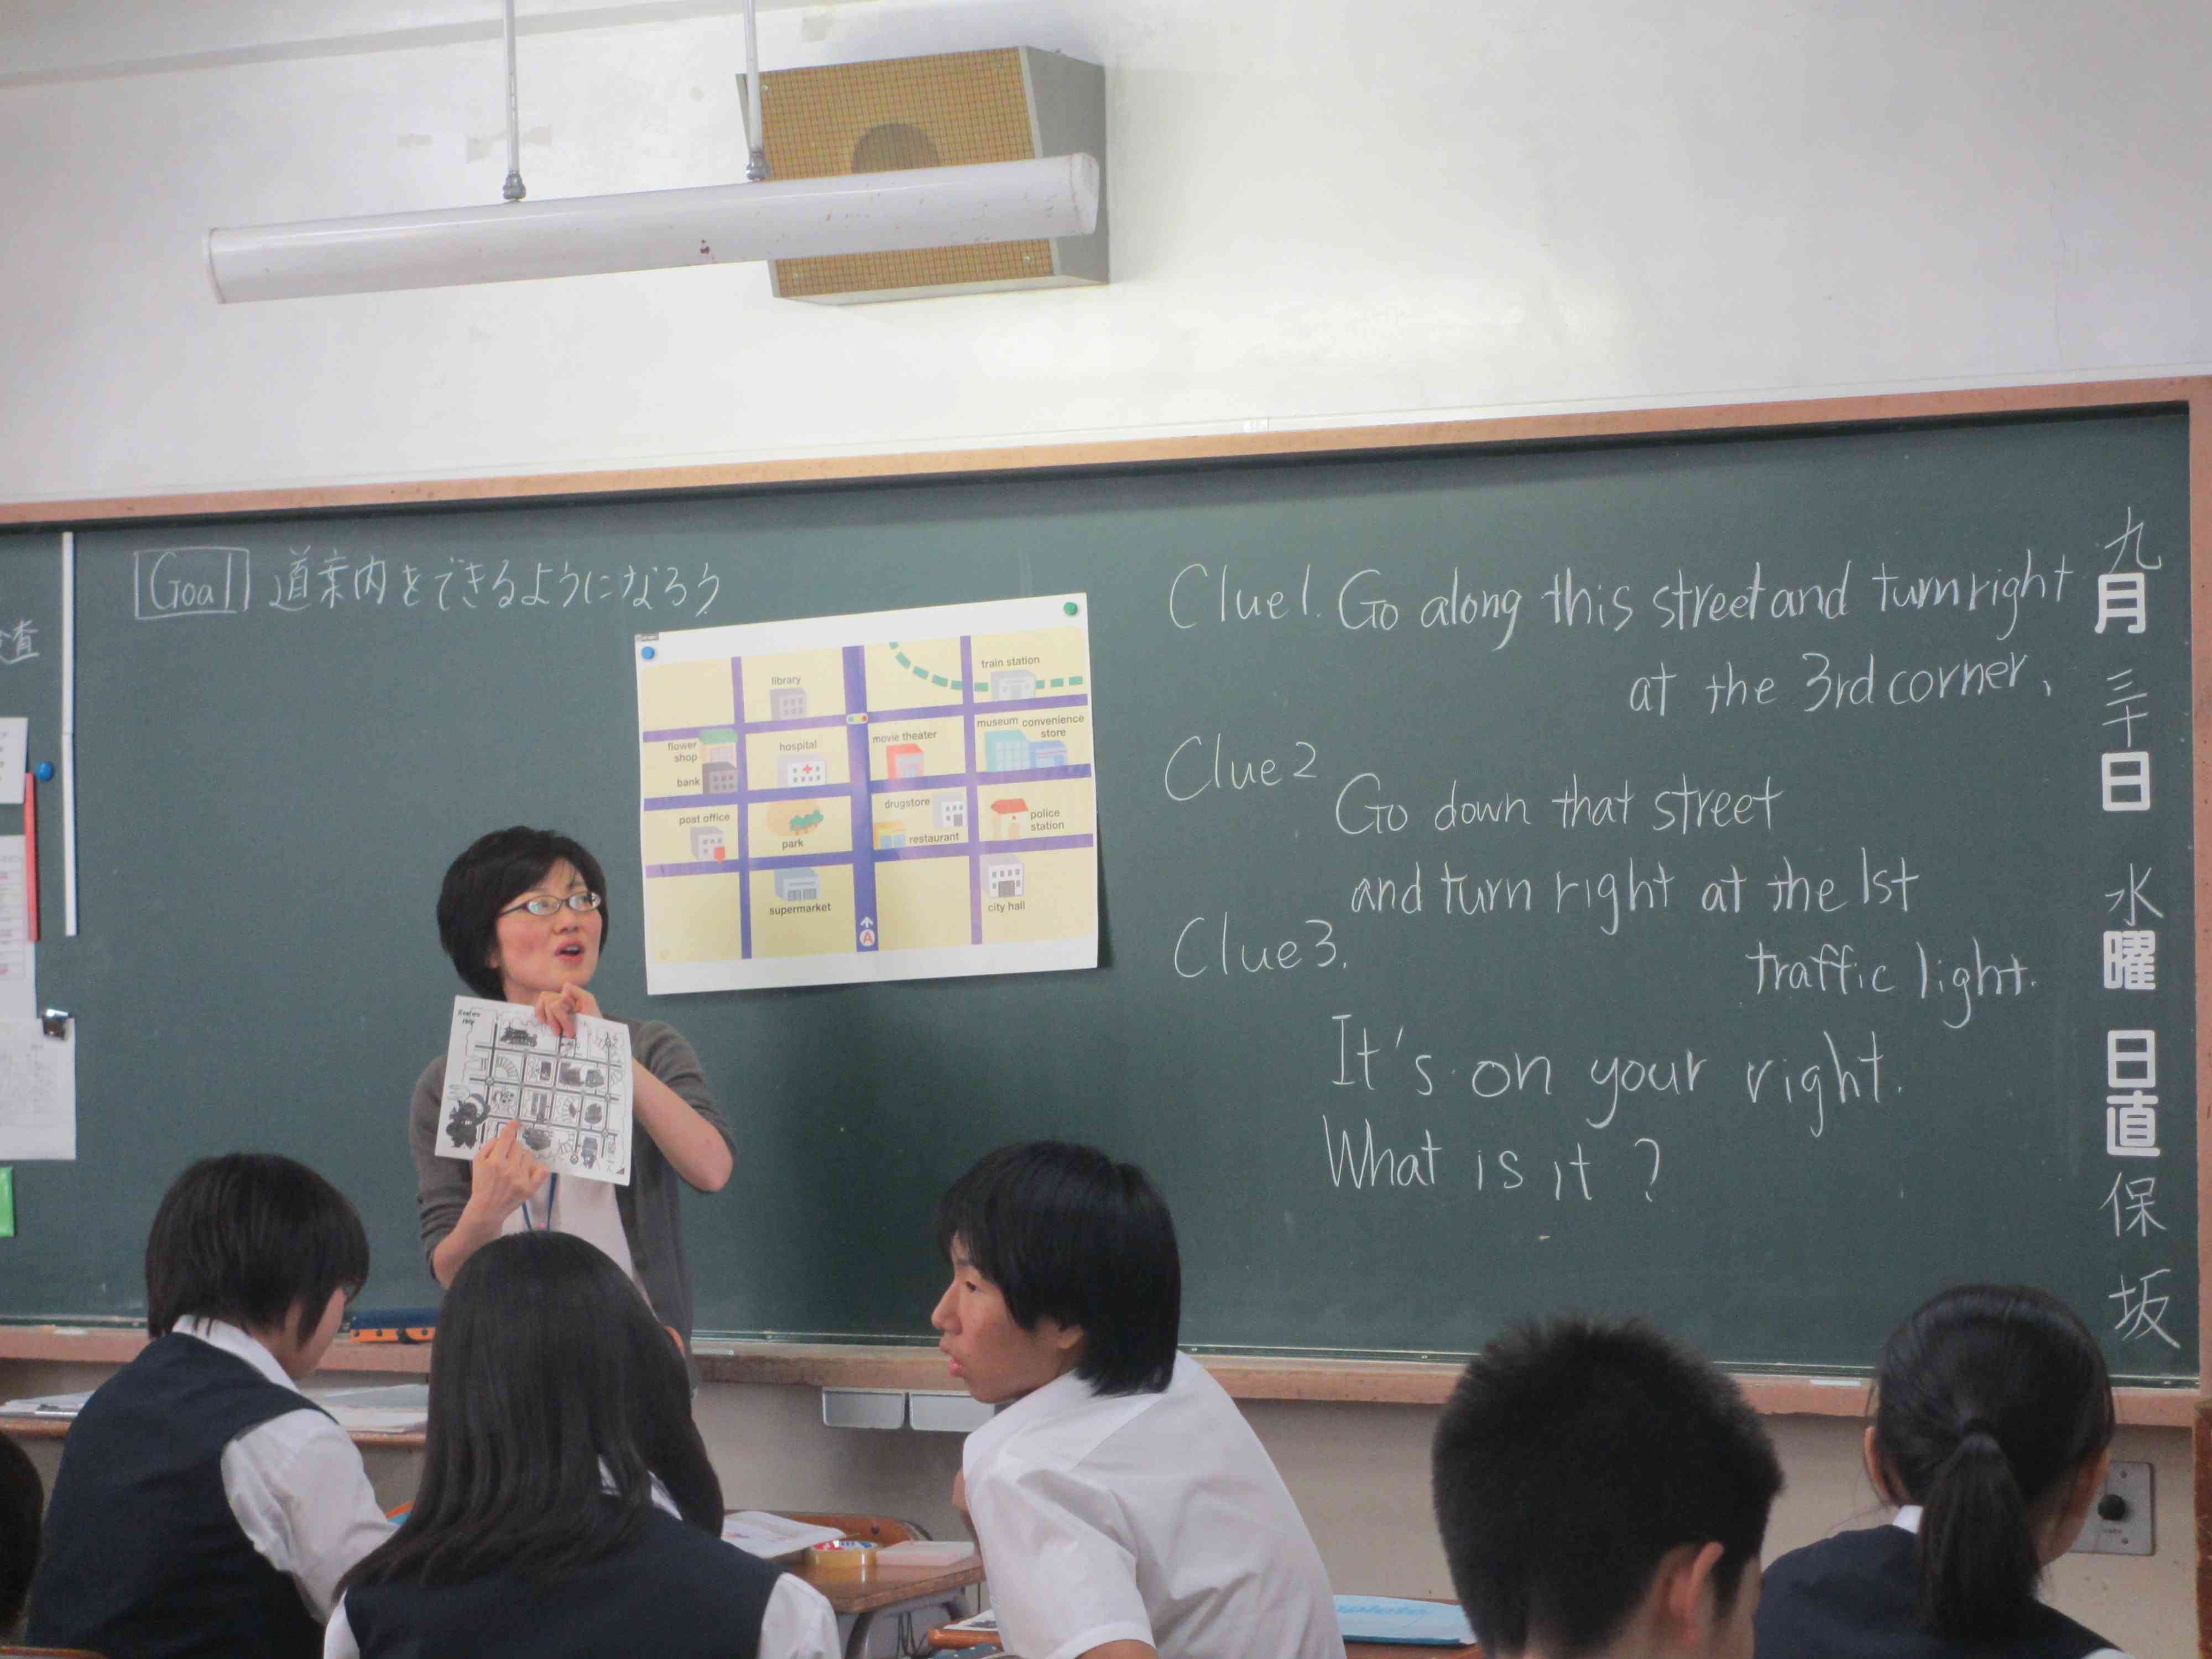 Goal 道案内をできるようになろう
査
library
train station
flower
shop
bank
hospital
movie theater
museum
convenience
store
post office
park
drugstore
restaurant
police
station
supermarket
city hall
A
Clue1. Go along this street and turn right
at the 3rd corner.
Clue2
Go down that street
and turn right at the 1st
traffic light.
Clue3.
It's on your right.
What is it?
九月三十日水曜日直保坂